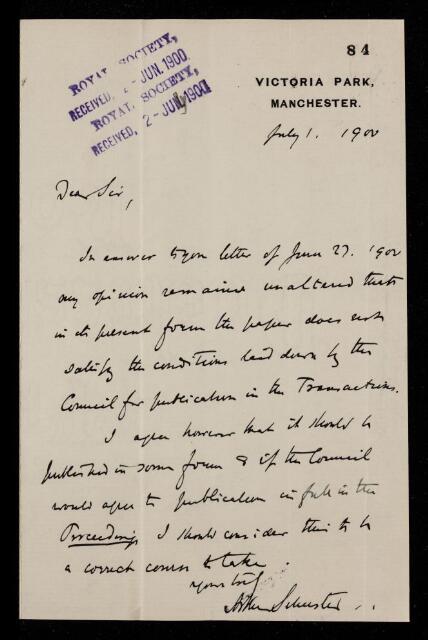 84
ROYAL SOCIETY,
RECEIVED, 2 - JUN. 1900
ROYAL SOCIETY,
RECEIVED, 2 - JUly 1900
VICTORIA PARK,
MANCHESTER.
July 1. 1900
Dear Sir,
In answer to your letter of June 27. 1900
my opinion remains unaltered that
in its present form the paper does not
satisfy the conditions laid down by the
Council for publication in the Transactions.
I agree however that it should be
published in some form & if the Council
would agree to publication in full in the
Proceedings I should consider this to be
a correct course to take.
yours truly
Arthur Schuster